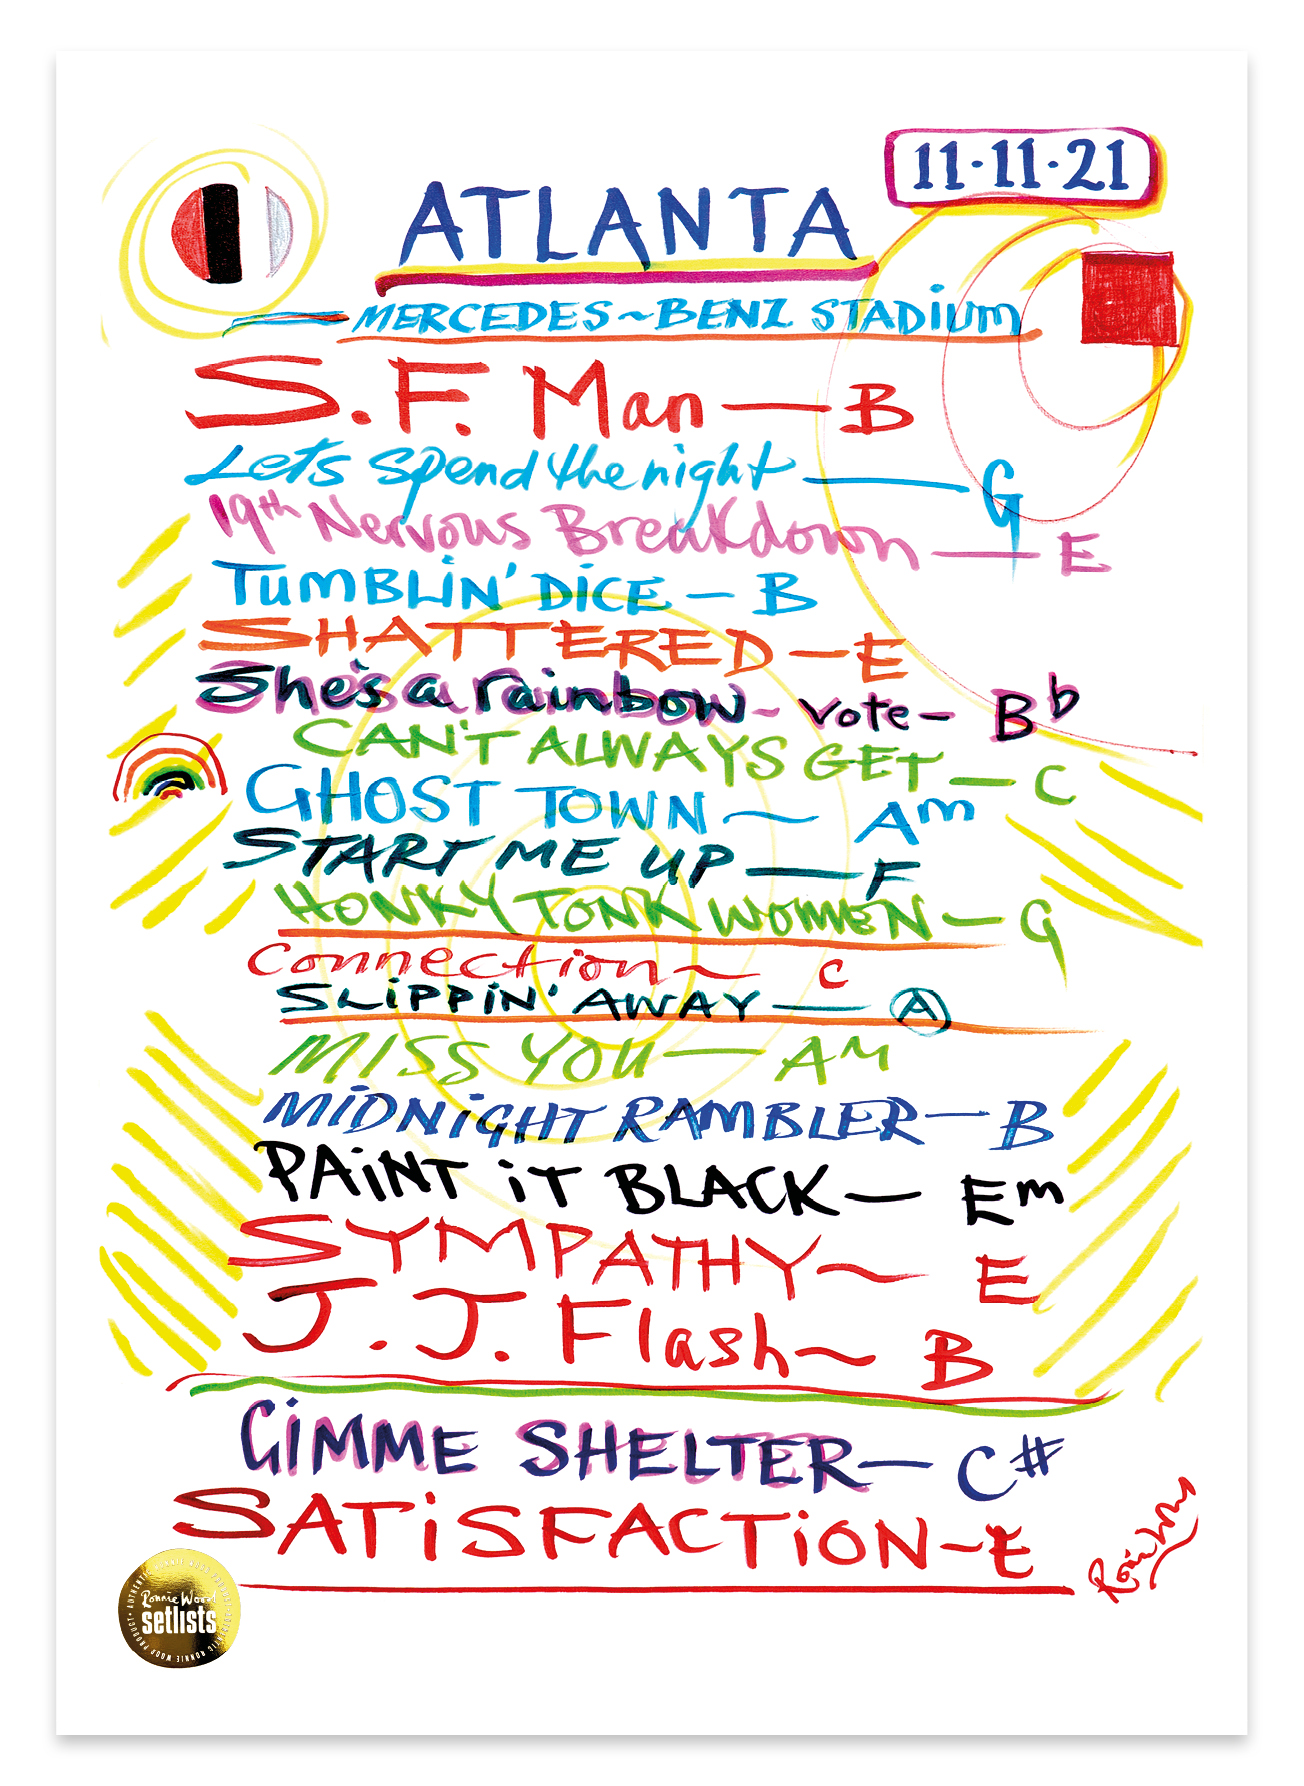 11·11·21
ATLANTA
MERCEDES~BENZ STADiUM
S.F. Man — B
Let's Spend the night — G
19th Nervous Breakdown — E
TUMBLiN' DiCE — B
SHATTERED — E
She's a rainbow - vote - Bb
CAN'T ALWAYS GET — C
GHOST TOWN ~ Am
START ME UP — F
HONKY TONK WOMEN — G
Connection ~ C
SLiPPiN' AWAY — A
MISS YOU — AM
MiDNiGHT RAMBLER — B
PAiNT iT BLACK — Em
SYMPATHY ~ E
J.J. Flash ~ B
GiMME SHELTER — C#
SATiSFACTiON ~ E
Ronnie Wood
setlists
AUTHENTIC RONNIE WOOD PRODUCT • AUTHENTIC RONNIE WOOD PRODUCT •